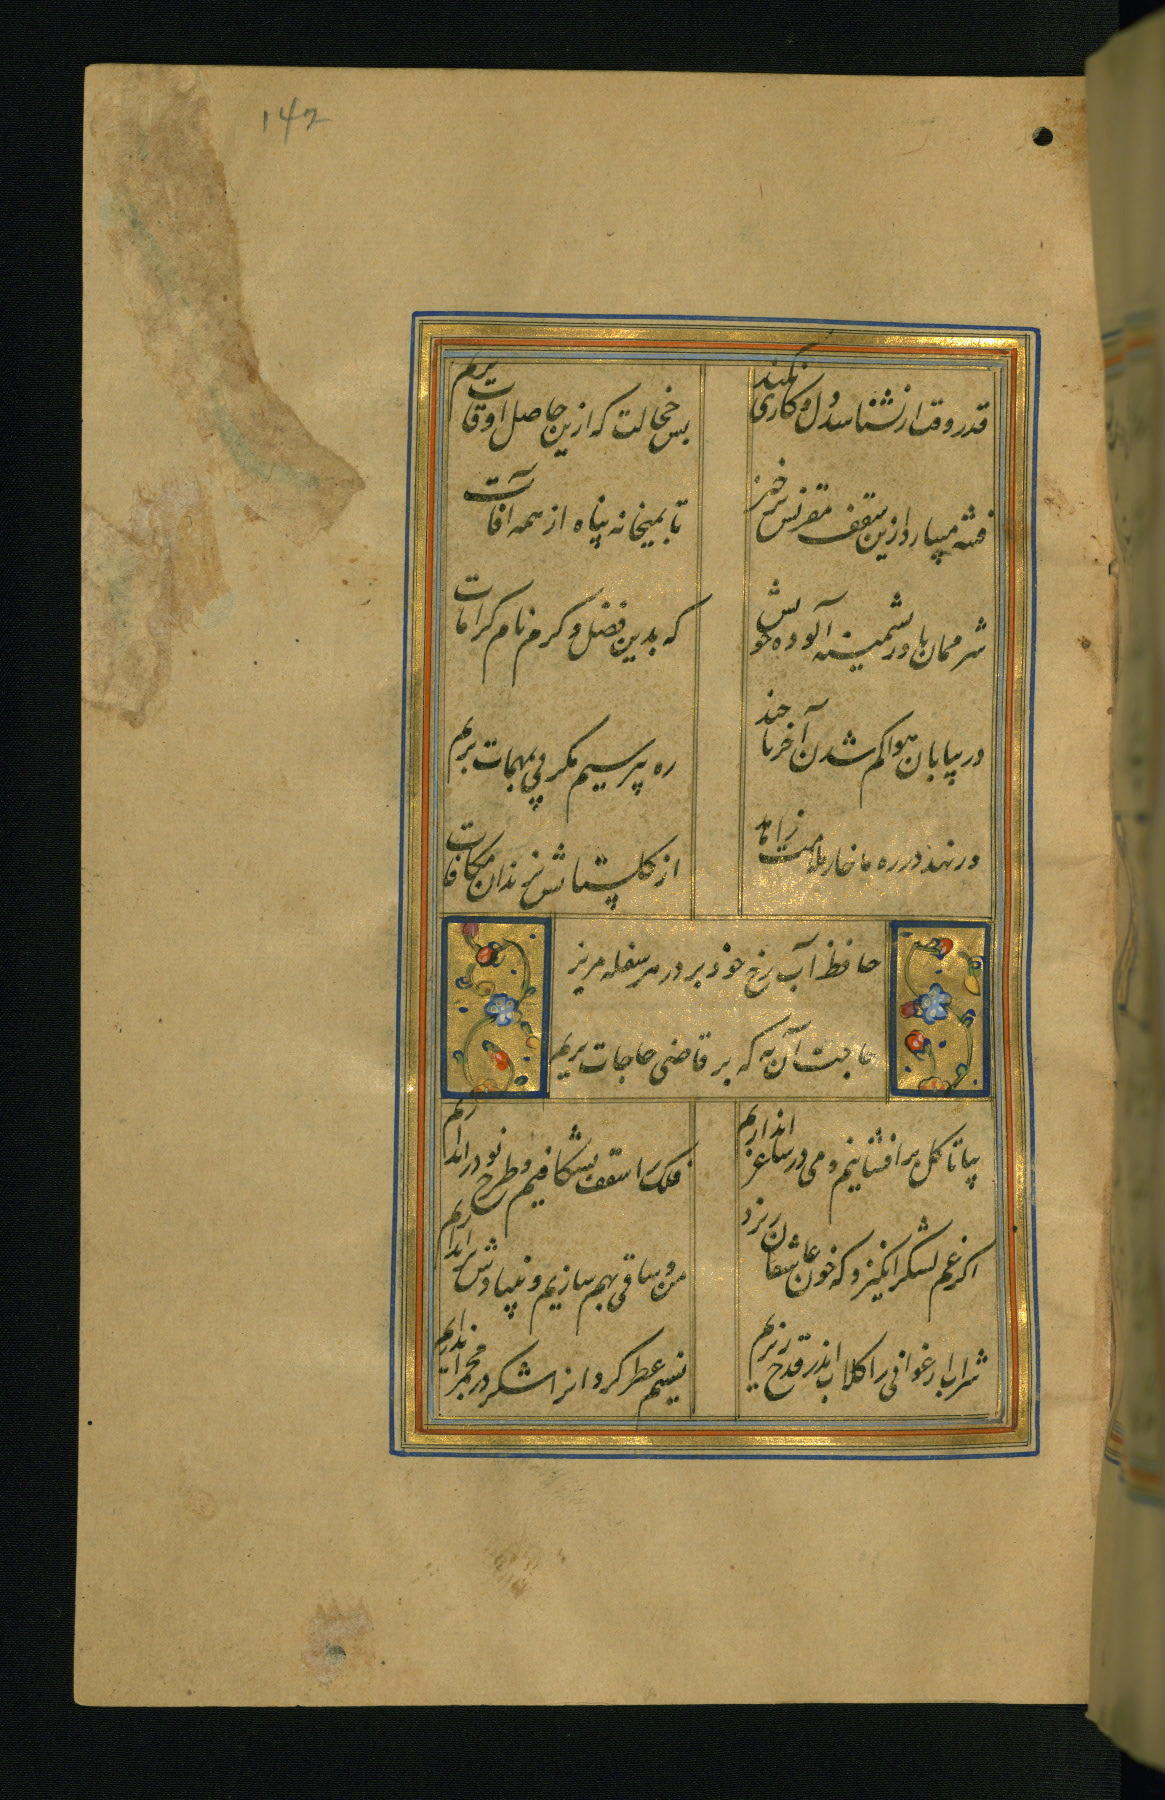 ۱۴۲
قدر وقت ار نشناسد دل و کاری نکند
بس خجالت که ازین حاصل اوقات بریم
فتنه میبارد ازین سقف مقرنس برخیز
تا بمیخانه پناه از همه آفات
شرممان باد ز پشمینه آلوده خویش
که بدین فضل و کرم نام کرامات
در بیابان هوا کم شدن آخر تا چند
ره پرسیم مکر پی بمهمات بریم
ور نهد در ره ما خار ملامت زاهد
از کلستانش بزندان مکافات
حافظ آب رخ خود بر در هر سفله مریز
حاجت آن به که بر قاضی حاجات بریم
بیا تا کل برافشانیم و می در ساغر اندازیم
فلک را سقف بشکافیم و طرح نو دراندازیم
اکر غم لشکر انکیزد که خون عاشقان ریزد
من و ساقی بهم سازیم و بنیادش اندازیم
شراب ارغوانی را کلاب اندر قدح ریزیم
نسیم عطر کردانرا شکر در مجمر اندازیم